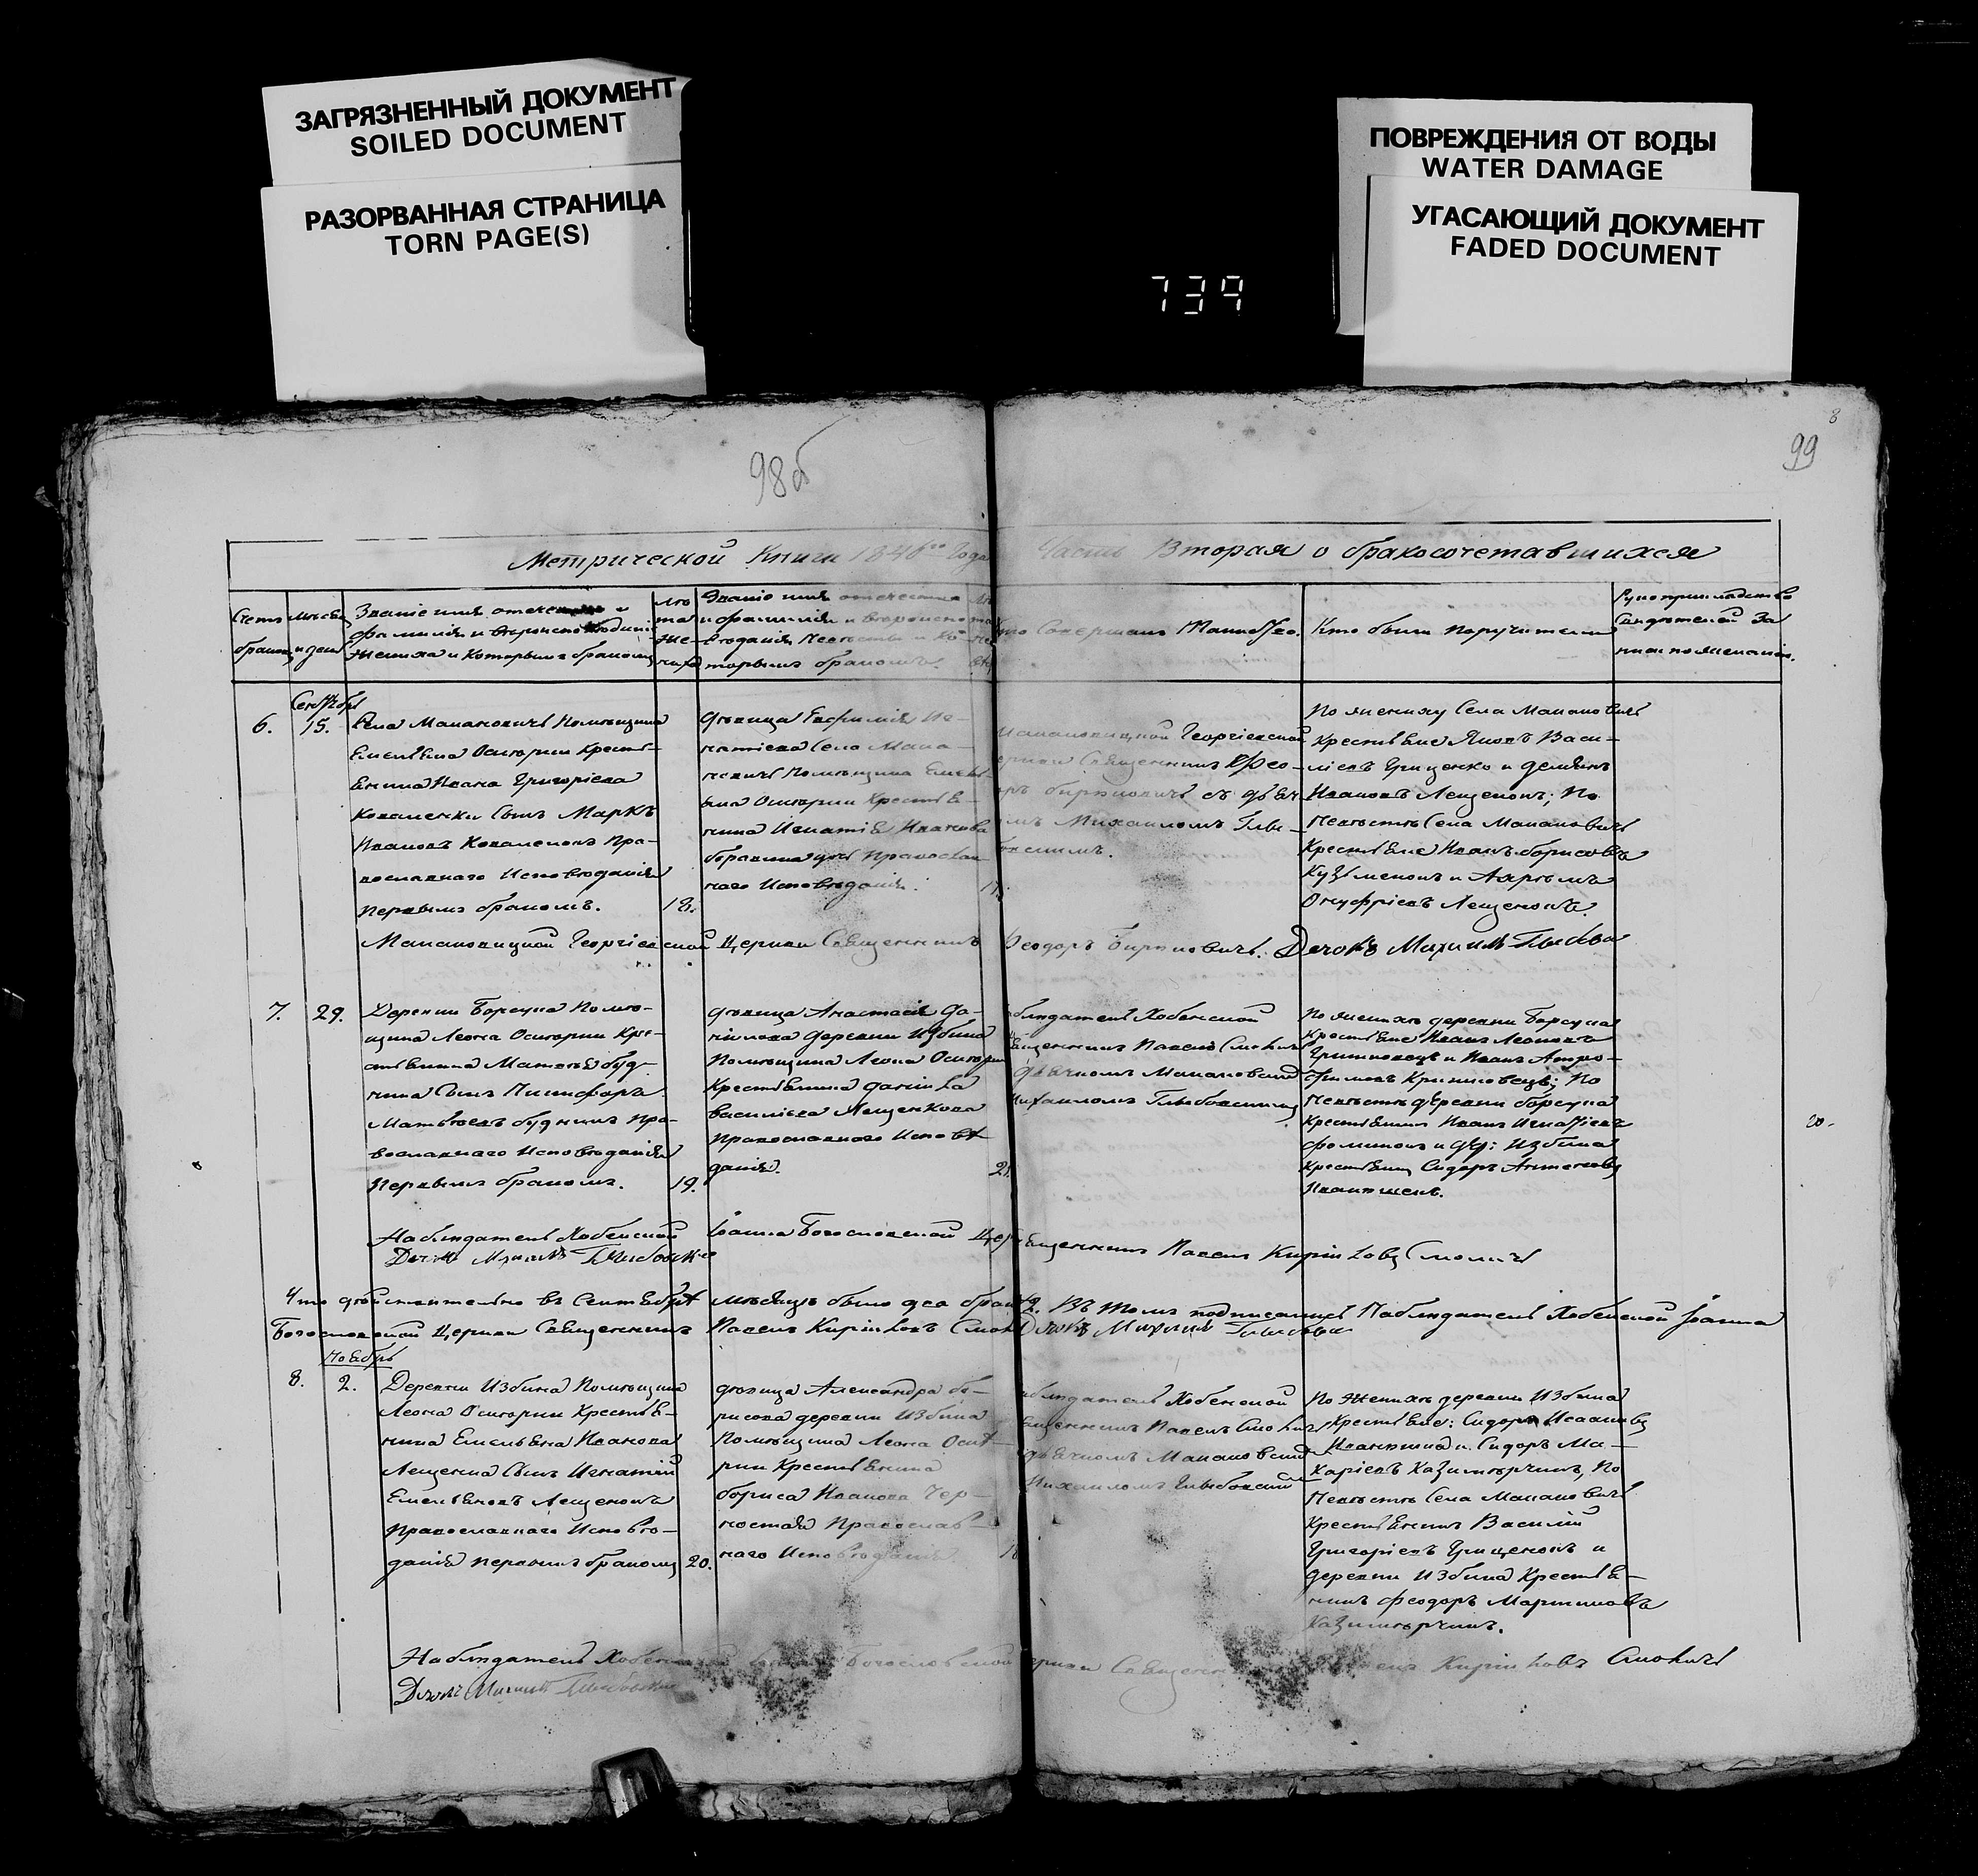 ЗАГРЯЗНЕННЫЙ ДОКУМЕНТ
SOILED DOCUMENT
РАЗОРВАННАЯ СТРАНИЦА
TORN PAGE(S)
ПОВРЕЖДЕНИЯ ОТ ВОДЫ
WATER DAMAGE
УГАСАЮЩИЙ ДОКУМЕНТ
FADED DOCUMENT
739
98об
8
99
Метрической Книги 1846го Года Часть Вторая о бракосочетавшихся
Счетъ
браковъ
Месяцъ
и день
Званіе имя отечество и
фамилія и вероисповеданіе
жениха и которымъ бракомъ
Лѣ
та
же
ниха
Званіе имя отечество
и фамилія и вероиспо
веданія Невесты и ко
торымъ бракомъ.
Кто Совершалъ Таинство.
Кто были поручители
Рукоприкладство
Свидѣтелей За
писи по желанію.
Сентябрь
6. 15.
Села Макановичъ Помѣщика
Емельяна Оскерки Кресть-
янина Ивана Григоріева
Коваленки Сынъ Маркъ
Ивановъ Коваленокъ Пра-
вославнаго Исповѣданія
первымъ бракомъ. 18.
дѣвица Евфимія Иг-
натіева Села Мака-
новичъ Помѣщика Емель-
яна Оскерки Крестья-
нина Игнатія Иванова
Православ-
наго Исповѣданія.
Макановицкой Георгіевской
Церкви Священникъ Фео-
доръ Бирюковичъ съ дьяч-
комъ Михаиломъ Глы-
бовскимъ.
По жениху Села Макановичъ
Крестьяне Яковъ Васи-
ліевъ Грищенко и Демьянъ
Ивановъ Лещенокъ; По
Невестѣ Села Макановичъ
Крестьяне Иванъ Борисовъ
Кузьменокъ и
Онуфріевъ Лещенокъ.
Макановицкой Георгіевской Церкви Священникъ Феодоръ Бирюковичъ. Дячокъ Михаилъ
7. 29.
Деревни Борсука Помѣ-
щика Леона Оскерки Кре-
стьянина Матвѣя Буд-
ника Сынъ Никифоръ
Матвѣевъ Будникъ Пра-
вославнаго Исповѣданія
Первымъ бракомъ. 19.
дѣвица Анастасія Да-
нилова деревни Избина
Помѣщика Леона Оскерки
Крестьянина Данила
Василіева Лещенкова
Православнаго Исповѣ
данія. 21.
Наблюдатель Хобенской
Священникъ Павелъ Смоличъ
дьячкомъ Макановской
Михаиломъ Глыбовскимъ
По женихѣ деревни Борсука
Крестьяне Иванъ Леоновъ
и Иванъ
По
Невестѣ деревни Борсука
Крестьянинъ Иванъ Игнатіевъ
Фоминокъ и дер: Избина
Крестьянинъ Сидоръ
20.
Наблюдатель Хобенской Іоанна Богословской Церкви Священникъ Павелъ Кириловъ Смоличъ
Дячокъ Михаилъ Глыбовскій
Что дѣйствительно въ Сентябрѣ мѣсяцѣ было два брака 2. Въ томъ подписались Наблюдатель Хобенской Іоанна
Богословской Церкви Священникъ Павелъ Кириловъ Смоличъ Дячокъ Михаилъ
Ноябрь
8. 2.
Деревни Избина Помѣщика
Леона Оскерки Крестья-
нина Емельяна Иванова
Лещенка Сынъ Игнатій
Емельяновъ Лещенокъ
Православнаго Исповѣ-
данія первымъ бракомъ 20.
дѣвица Александра Бо-
рисова деревни Избина
Помѣщика Леона Оске-
рки Крестьянина
Бориса Иванова Чер-
ностая Православ-
наго Исповѣданія
Наблюдатель Хобенской
Священникъ Павелъ Смоличъ
дьячкомъ Макановской
Михаиломъ Глыбовскимъ
По Женихѣ деревни Избина
Крестьяне: Сидоръ
и Сидоръ Ма-
каріевъ Казимірчикъ, По
Невестѣ Села Макановичъ
Крестьянинъ Василій
Григоріевъ Грищенокъ и
деревни Избина Крестья-
нинъ Феодоръ Мартиновъ
Казимірчикъ.
Наблюдатель Хобенской Богословской Церкви Священникъ Павелъ Кириловъ Смоличъ
Дячокъ Михаилъ Глыбовскій